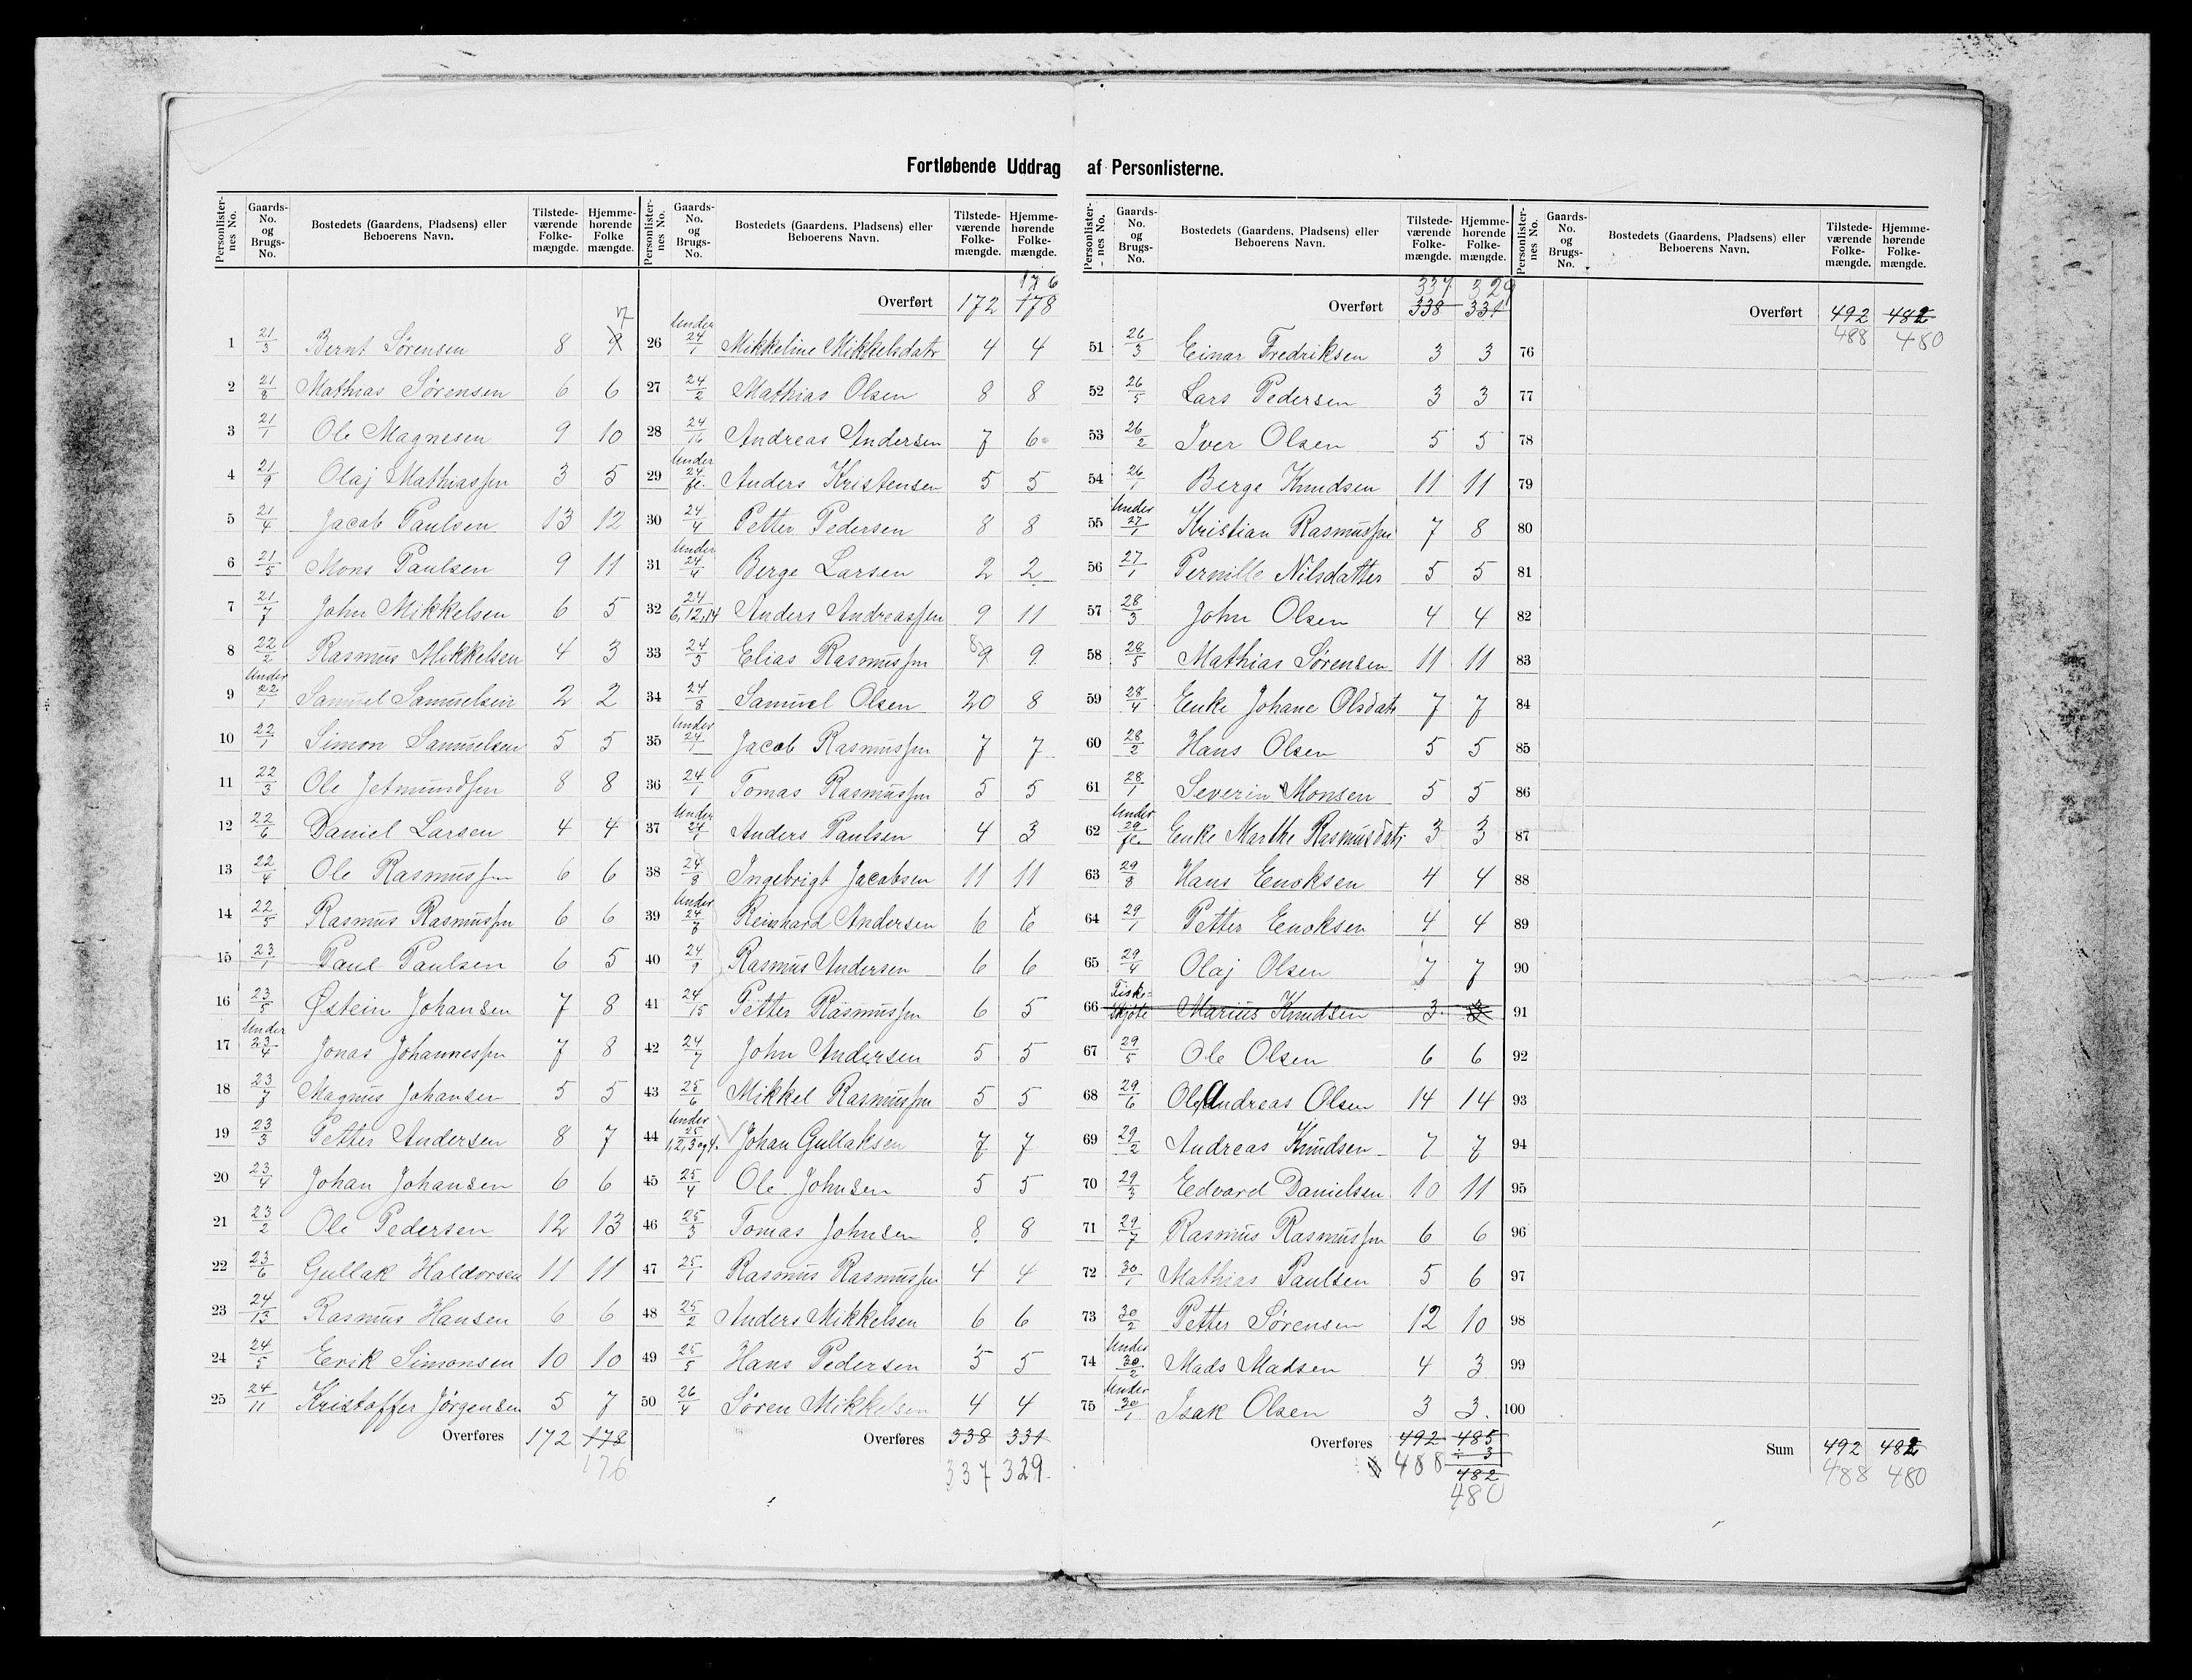 Fortløbende Uddrag af Personlisterne.
Personlister-nes No. Gaards-No. og Brugs-No. Bostedets (Gaardens, Pladsens) eller Beboerens Navn. Tilstede-værende Folke-mængde. Hjemme-hørende Folke mængde.
1 21/3 Bernt Sørensen 8 9 7
2 21/8 Mathias Sørensen 6 6
3 21/1 Ole Magnesen 9 10
4 21/9 Olaj Mathiassen 3 5
5 21/4 Jacob Paulsen 13 12
6 21/5 Mons Paulsen 9 11
7 21/7 John Mikkelsen 6 5
8 22/2 Rasmus Mikkelsen 4 3
9 Under 22/1 Samuel Samuelsen 2 2
10 22/1 Simon Samuelsen 5 5
11 22/3 Ole Jetmundsen 8 8
12 22/6 Daniel Larsen 4 4
13 22/4 Ole Rasmussen 6 6
14 22/5 Rasmus Rasmussen 6 6
15 23/1 Paul Paulsen 6 5
16 23/5 Østein Johansen 7 8
17 Under 23/4 Jonas Johannessen 7 8
18 23/7 Magnus Johansen 5 5
19 23/3 Petter Andersen 8 7
20 23/4 Johan Johansen 6 6
21 23/2 Ole Pedersen 12 13
22 23/6 Gullak Haldorsen 11 11
23 24/13 Rasmus Hansen 6 6
24 24/5 Erik Simonsen 10 10
25 24/11 Kristoffer Jørgensen 5 7
Overføres 172 178
176
Personlister-nes No. Gaards-No. og Brugs-No. Bostedets (Gaardens, Pladsens) eller Beboerens Navn. Tilstede-værende Folke-mængde. Hjemme-hørende Folke-mængde.
176
Overført 172 178
26 Under 24/1 Mikkeline Mikkelsdatr 4 4
27 24/2 Mathias Olsen 8 8
28 24/16 Andreas Andersen 7 6
29 Under 24/fl. Anders Kristensen 5 5
30 24/4 Petter Pedersen 8 8
31 Under 24/4 Berge Larsen 2 2
32 24/6,12,14 Anders Andreassen 9 11
33 24/3 Elias Rasmussen 8 9 9
34 24/8 Samuel Olsen 20 8
35 Under 24/1 Jacob Rasmussen 7 7
36 24/1 Tomas Rasmussen 5 5
37 Under 24/7 Anders Paulsen 4 3
38 24/8 Ingebrigt Jacobsen 11 11
39 Under 24/7 Reinhard Andersen 6 6
40 24/9 Rasmus Andersen 6 6
41 24/15 Petter Rasmussen 6 5
42 24/7 John Andersen 5 5
43 25/6 Mikkel Rasmussen 5 5
44 Under 25/1,2,3 og 4. Johan Gullaksen 7 7
45 25/4 Ole Johnsen 5 5
46 25/3 Tomas Johnsen 8 8
47 25/1 Rasmus Rasmussen 4 4
48 25/2 Anders Mikkelsen 6 6
49 25/5 Hans Pedersen 5 5
50 26/4 Søren Mikkelsen 4 4
Overføres 338 331
337 329
Personlister-nes No. Gaards-No. og Brugs-No. Bostedets (Gaardens, Pladsens) eller Beboerens Navn. Tilstede-værende Folke-mængde. Hjemme-hørende Folke-mængde.
337 329
Overført 338 331
51 26/3 Einar Fredriksen 3 3
52 26/5 Lars Pedersen 3 3
53 26/2 Iver Olsen 5 5
54 26/1 Berge Knudsen 11 11
55 Under 27/1 Kristian Rasmussen 7 8
56 27/1 Pernille Nilsdatter 5 5
57 28/3 John Olsen 4 4
58 28/5 Mathias Sørensen 11 11
59 28/4 Enke Johane Olsdatr 7 7
60 28/2 Hans Olsen 5 5
61 28/1 Severin Monsen 5 5
62 Under 29/fl. Enke Marthe Rasmusdatr 3 3
63 29/8 Hans Enoksen 4 4
64 29/1 Petter Enoksen 4 4
65 29/4 Olaj Olsen 7 7
66 Fiske-skjøte Marius Knudsen 3 3
67 29/5 Ole Olsen 6 6
68 29/6 Ole Andreas Olsen 14 14
69 29/2 Andreas Knudsen 7 7
70 29/3 Edvard Danielsen 10 11
71 29/7 Rasmus Rasmussen 6 6
72 30/1 Mathias Paulsen 5 6
73 30/2 Petter Sørensen 12 10
74 Under 30/2 Mads Madsen 4 3
75 Under 30/1 Isak Olsen 3 3.
Overføres 492 485
÷ 3
488 482
480
Personlister-nes No. Gaards-No. og Brugs-No. Bostedets (Gaardens, Pladsens) eller Beboerens Navn. Tilstede-værende Folke-mængde. Hjemme-hørende Folke-mængde.
Overført 492 482
488 480
76
77
78
79
80
81
82
83
84
85
86
87
88
89
90
91
92
93
94
95
96
97
98
99
100
Sum 492 482
488 480